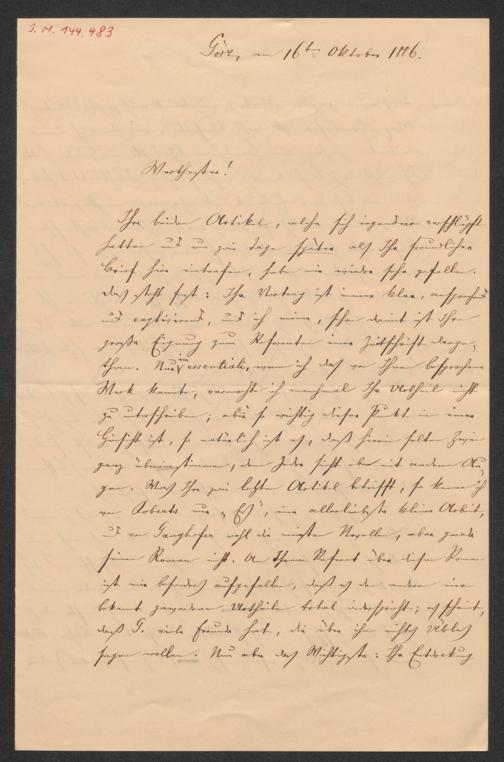 J. N. 144.983
Görz, am 16ten Oktober 1886.
Werthester!
Ihre beiden Artikel, welche sich irgendwo verschlüpft
hatten und um zwei Tage später als Ihr freundlicher
Brief hier eintrafen, haben mir wieder sehr gefallen.
Das steht fest: Ihr Vortrag ist immer klar, ansprechend
und explizirend, und ich meine, schon damit ist Ihre
große Eignung zum Referenten einer Zeitschrift darge-
than. Nur in essentiali, wenn ich das von Ihnen besprochene
Werk kannte, vermochte ich manchmal Ihr Urtheil nicht
zu unterschreiben; aber so wichtig dieser Punkt in einer
Hinsicht ist, so natürlich ist es, daß hierin selten Zwei
ganz übereinstimmen, denn Jeder sieht eben mit anderen Au-
gen. Was Ihre zwei letzten Artikel betrifft, so kenne ich
von Roberts nur „Es“, eine allerliebste kleine Arbeit,
und von Ganghofer wohl die meisten Novellen, aber gerade
seinen Roman nicht. An Ihrem Referat über diesen Roman
ist mir besonders aufgefallen, daß es den anderen mir
bekannt gewordenen Urtheilen total widerspricht; es scheint,
daß G. viele Freunde hat, die über ihn nichts Übles
sagen wollen. Nun aber das Wichtigste: Ihre Entdeckung